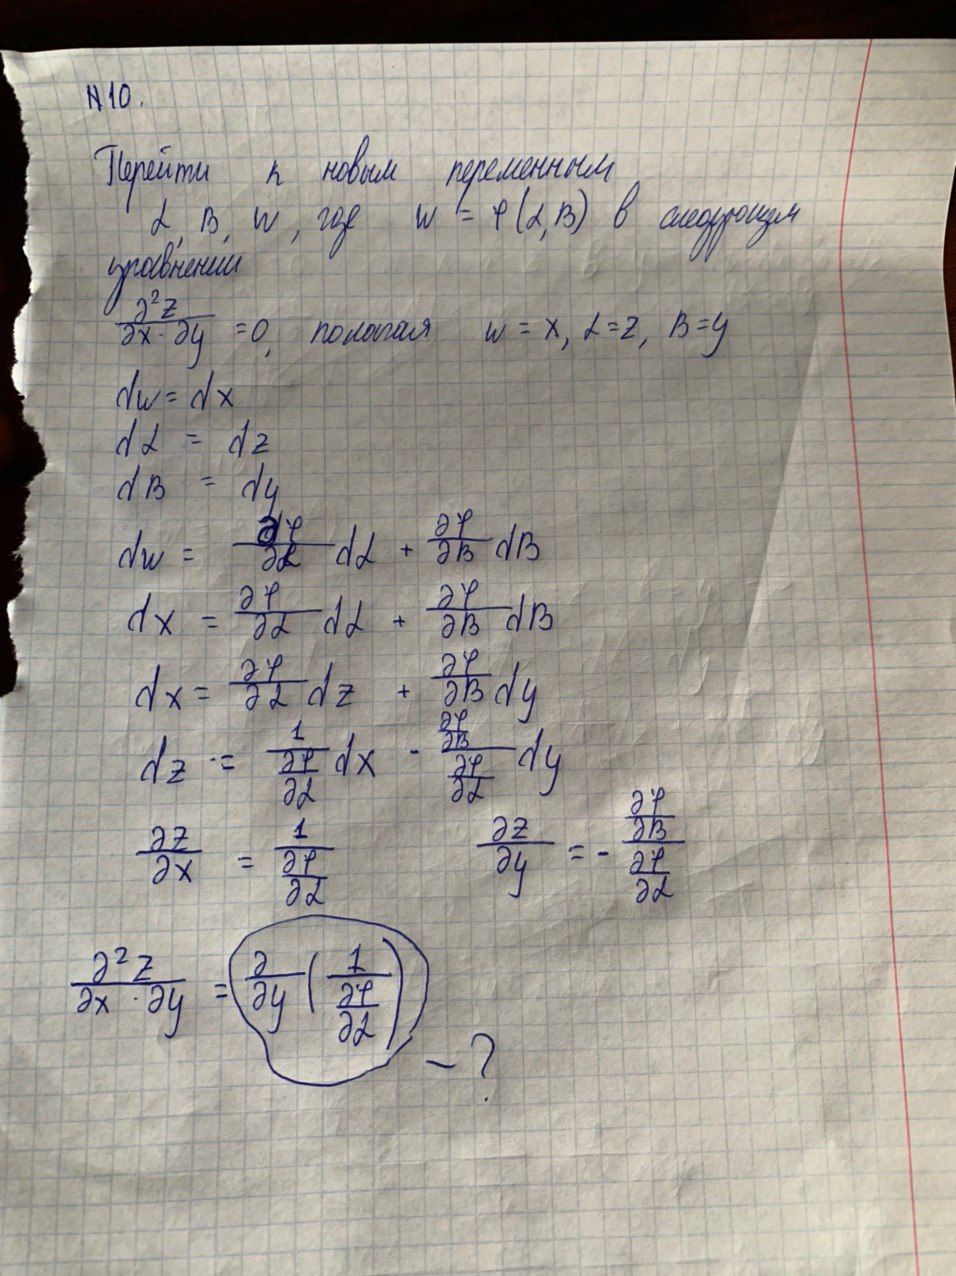 N10.
Перейти к новым переменным
α, β, w, где w = φ(α, β) в следующем
уравнении
∂²z/∂x·∂y = 0, полагая w = x, α = z, β = y
dw = dx
dα = dz
dβ = dy
dw = ∂φ/∂α dα + ∂φ/∂β dβ
dx = ∂φ/∂α dα + ∂φ/∂β dβ
dx = ∂φ/∂α dz + ∂φ/∂β dy
dz = 1/(∂φ/∂α) dx - (∂φ/∂β)/(∂φ/∂α) dy
∂z/∂x = 1/(∂φ/∂α) ∂z/∂y = - (∂φ/∂β)/(∂φ/∂α)
∂²z/∂x·∂y = ∂/∂y (1/(∂φ/∂α)) - ?